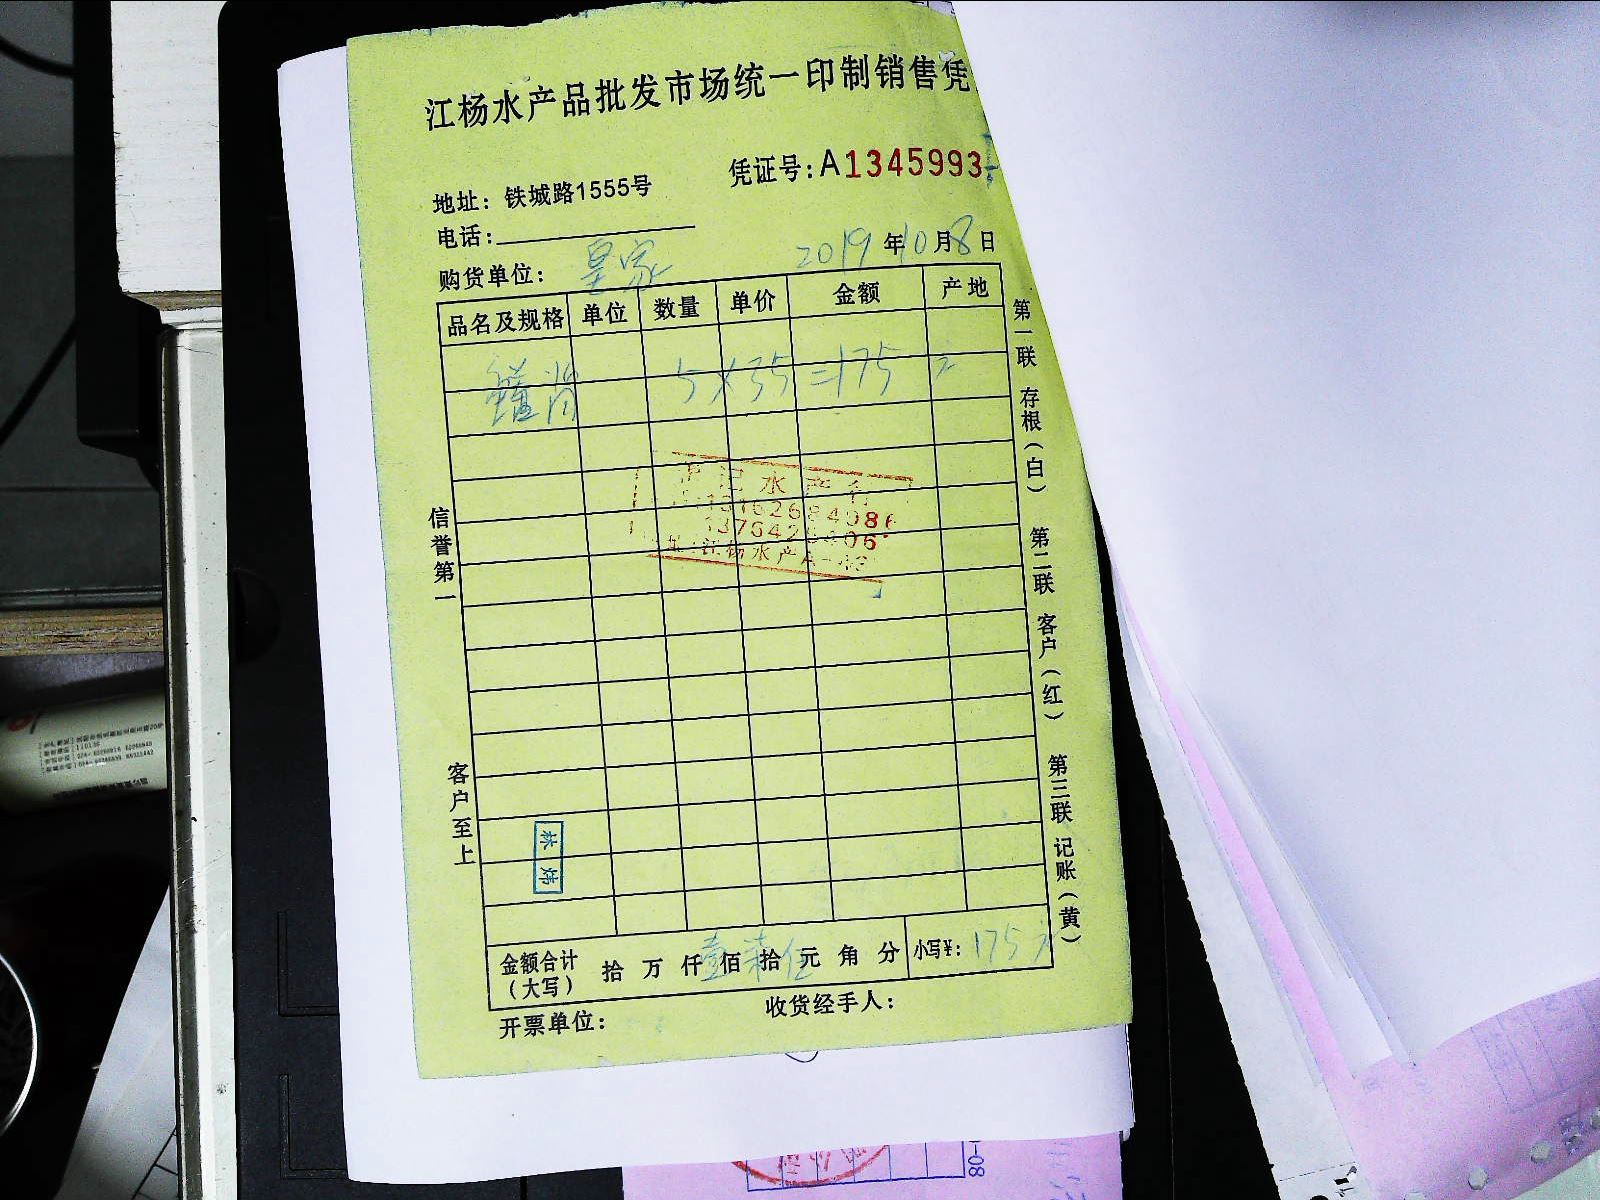 江杨水产品批发市场统一印制销售凭
凭证号:A1345993
地址：铁城路1555号
电话:
购货单位: 皇家
2019年10月8日
品名及规格 单位 数量 单价 金额 产地
5×35=175
记水产行
江杨水产A
信誉第一
客户至上
第一联 存根（白）
第二联 客户（红）
第三联 记账（黄）
林炜
金额合计（大写） 拾 万 仟 壹 佰 柒 拾 伍 元 角 分 小写¥: 175元
开票单位:
收货经手人:
-08